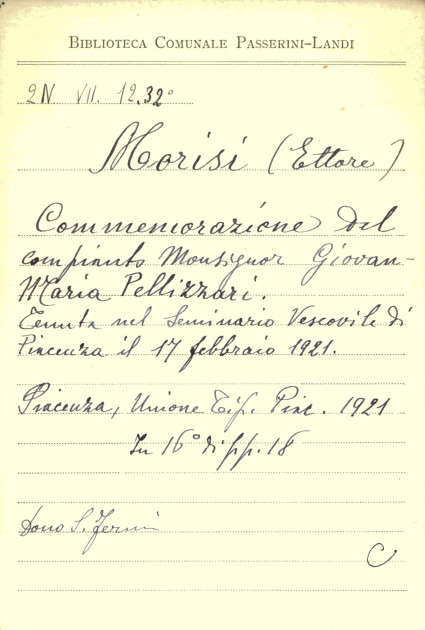 BIBLIOTECA COMUNALE PASSERINI-LANDI
2N VII. 12.32°
Morisi (Ettore)
Commemorazione del
compianto Monsignor Giovan-
Maria Pellizzari.
Tenuta nel Seminario Vescovile di
Piacenza il 17 febbraio 1921.
Piacenza, Unione Tip. Piac. 1921
In 16° di pp. 18
Dono S. Fermi
C